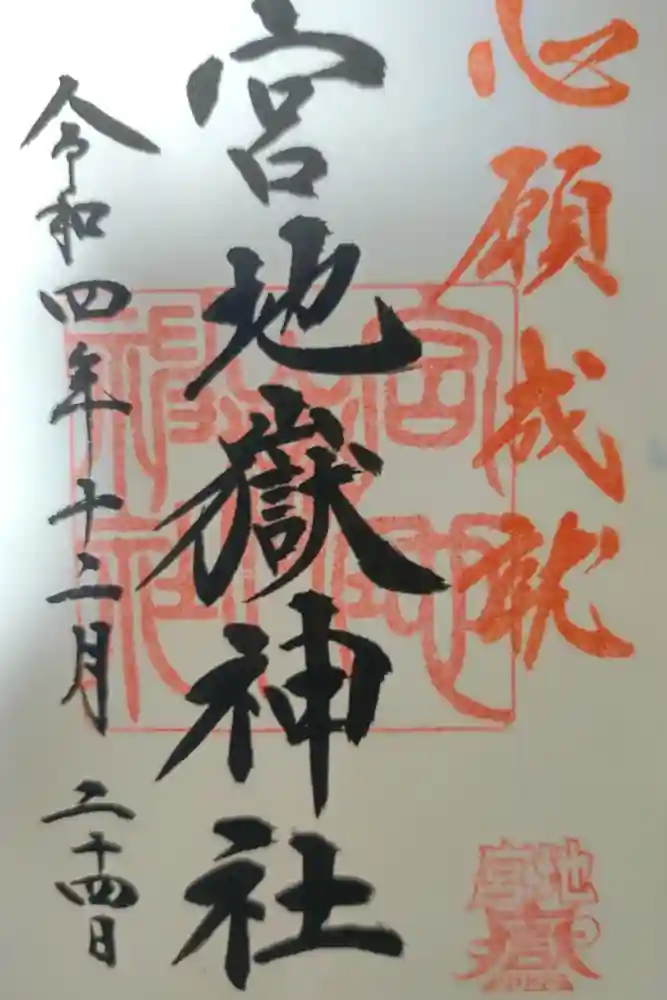 心願成就
宮地嶽神社
令和四年十二月二十四日
宮地嶽